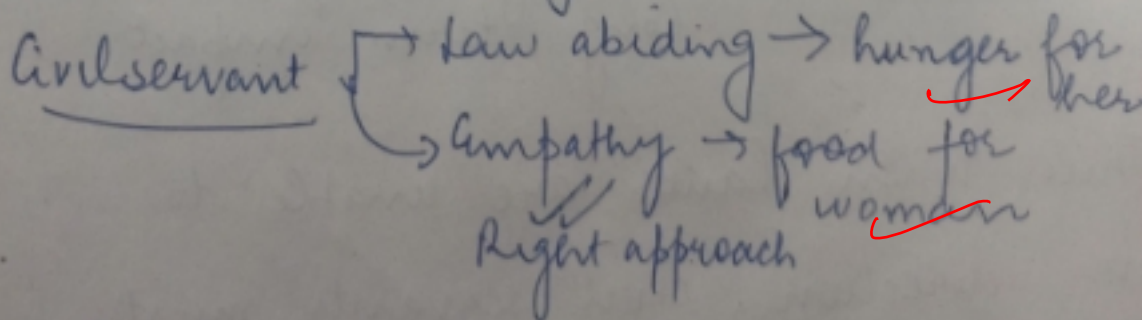 Civilservant → Law abiding → hunger for her
→ Empathy → food for woman
Right approach